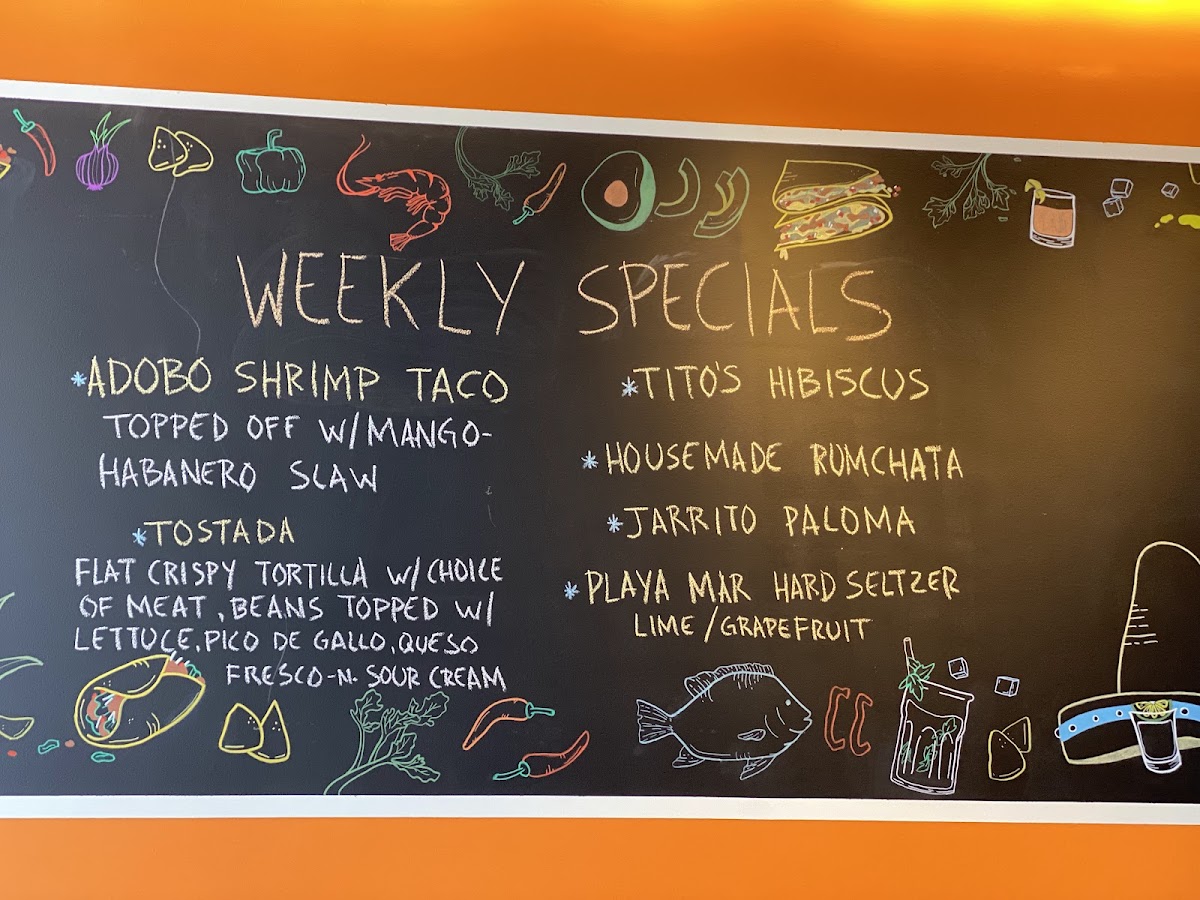 WEEKLY SPECIALS
*ADOBO SHRIMP TACO
TOPPED OFF W/MANGO-
HABANERO SLAW
*TOSTADA
FLAT CRISPY TORTILLA W/CHOICE
OF MEAT, BEANS TOPPED W/
LETTUCE, PICO DE GALLO, QUESO
FRESCO-N-SOUR CREAM
*TITO'S HIBISCUS
*HOUSEMADE RUMCHATA
*JARRITO PALOMA
*PLAYA MAR HARD SELTZER
LIME/GRAPEFRUIT